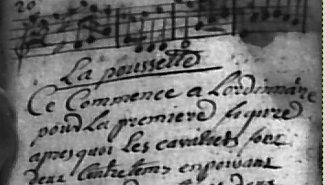 20
La poussette
Ce Commence a Lordinnaire
pour La premiere figure
apres quoi Les cavaliers font
deux Contretems en